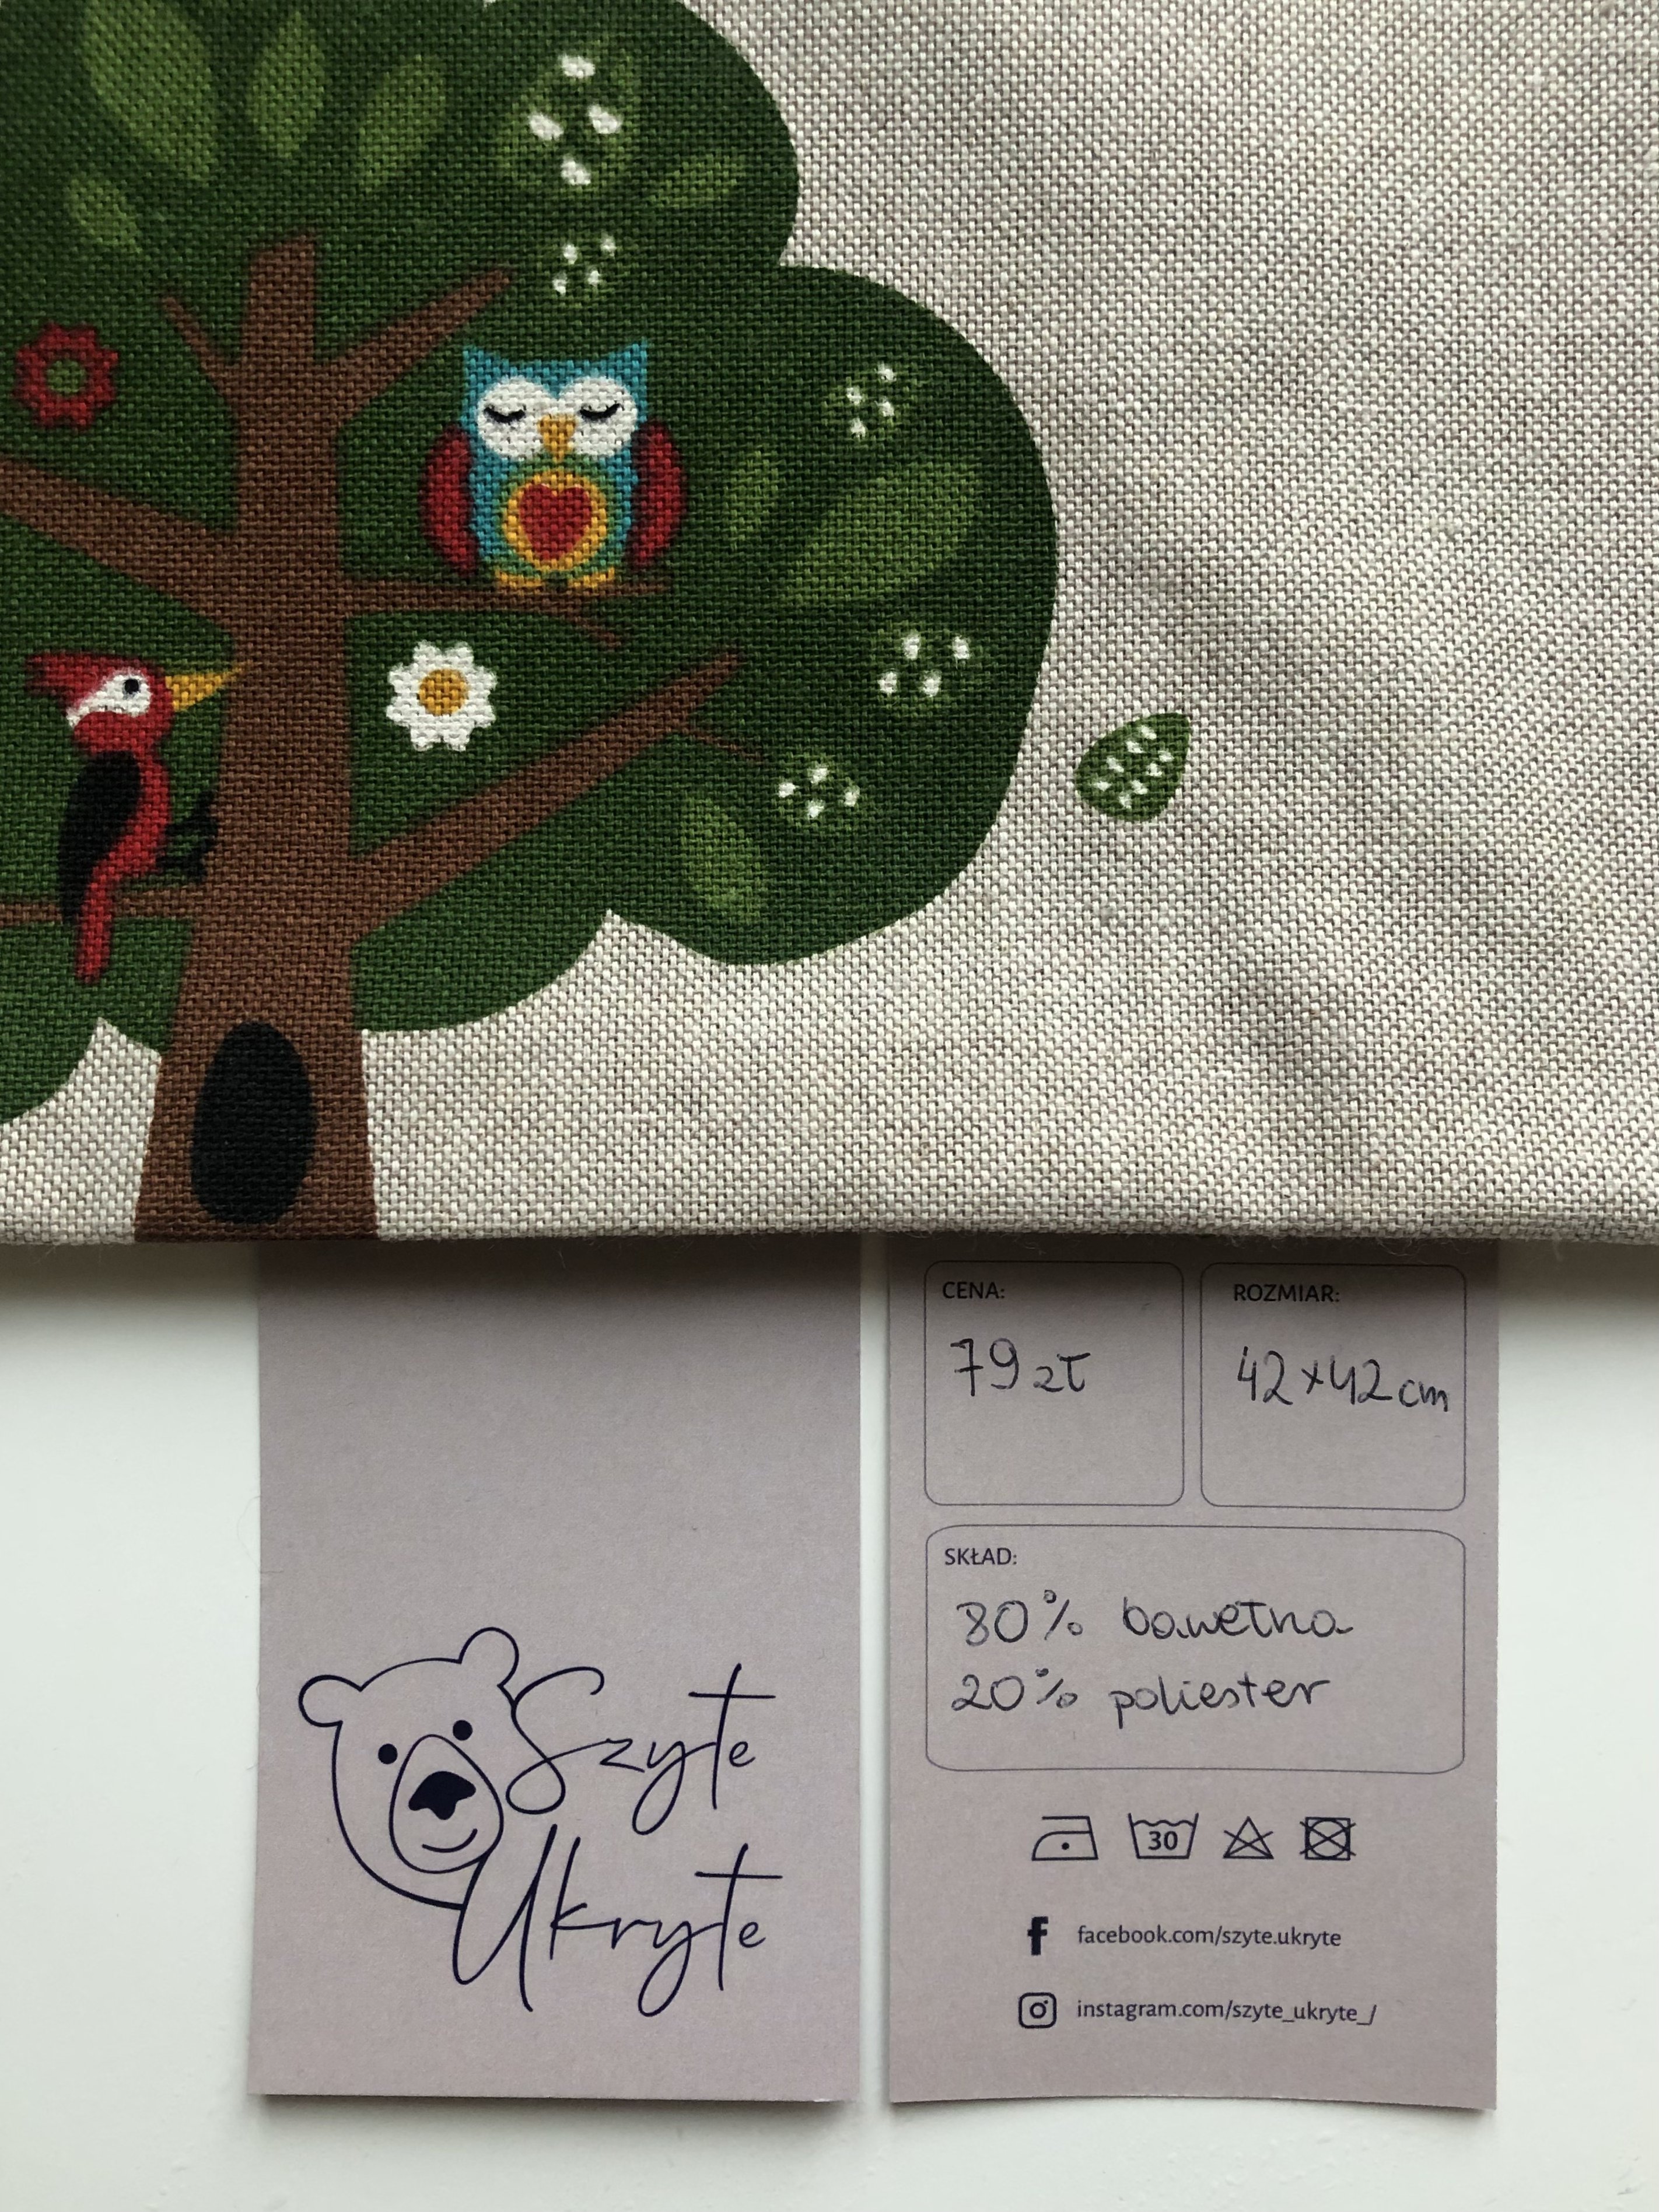 Szyte
Ukryte
CENA:
79 zł
ROZMIAR:
42x42 cm
SKŁAD:
80% bawełna
20% poliester
30
facebook.com/szyte.ukryte
instagram.com/szyte_ukryte_/